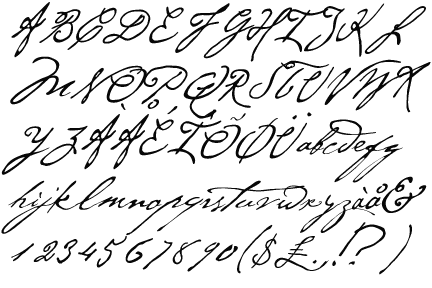 A B C D E F G H I J K L
M N O P Q R S T U V W X
Y Z À Å É Î Õ Ø Ü a b c d e f g
h i j k l m n o p q r s t u v w x y z à å &
1 2 3 4 5 6 7 8 9 0 ( $ £ . , ! ? )